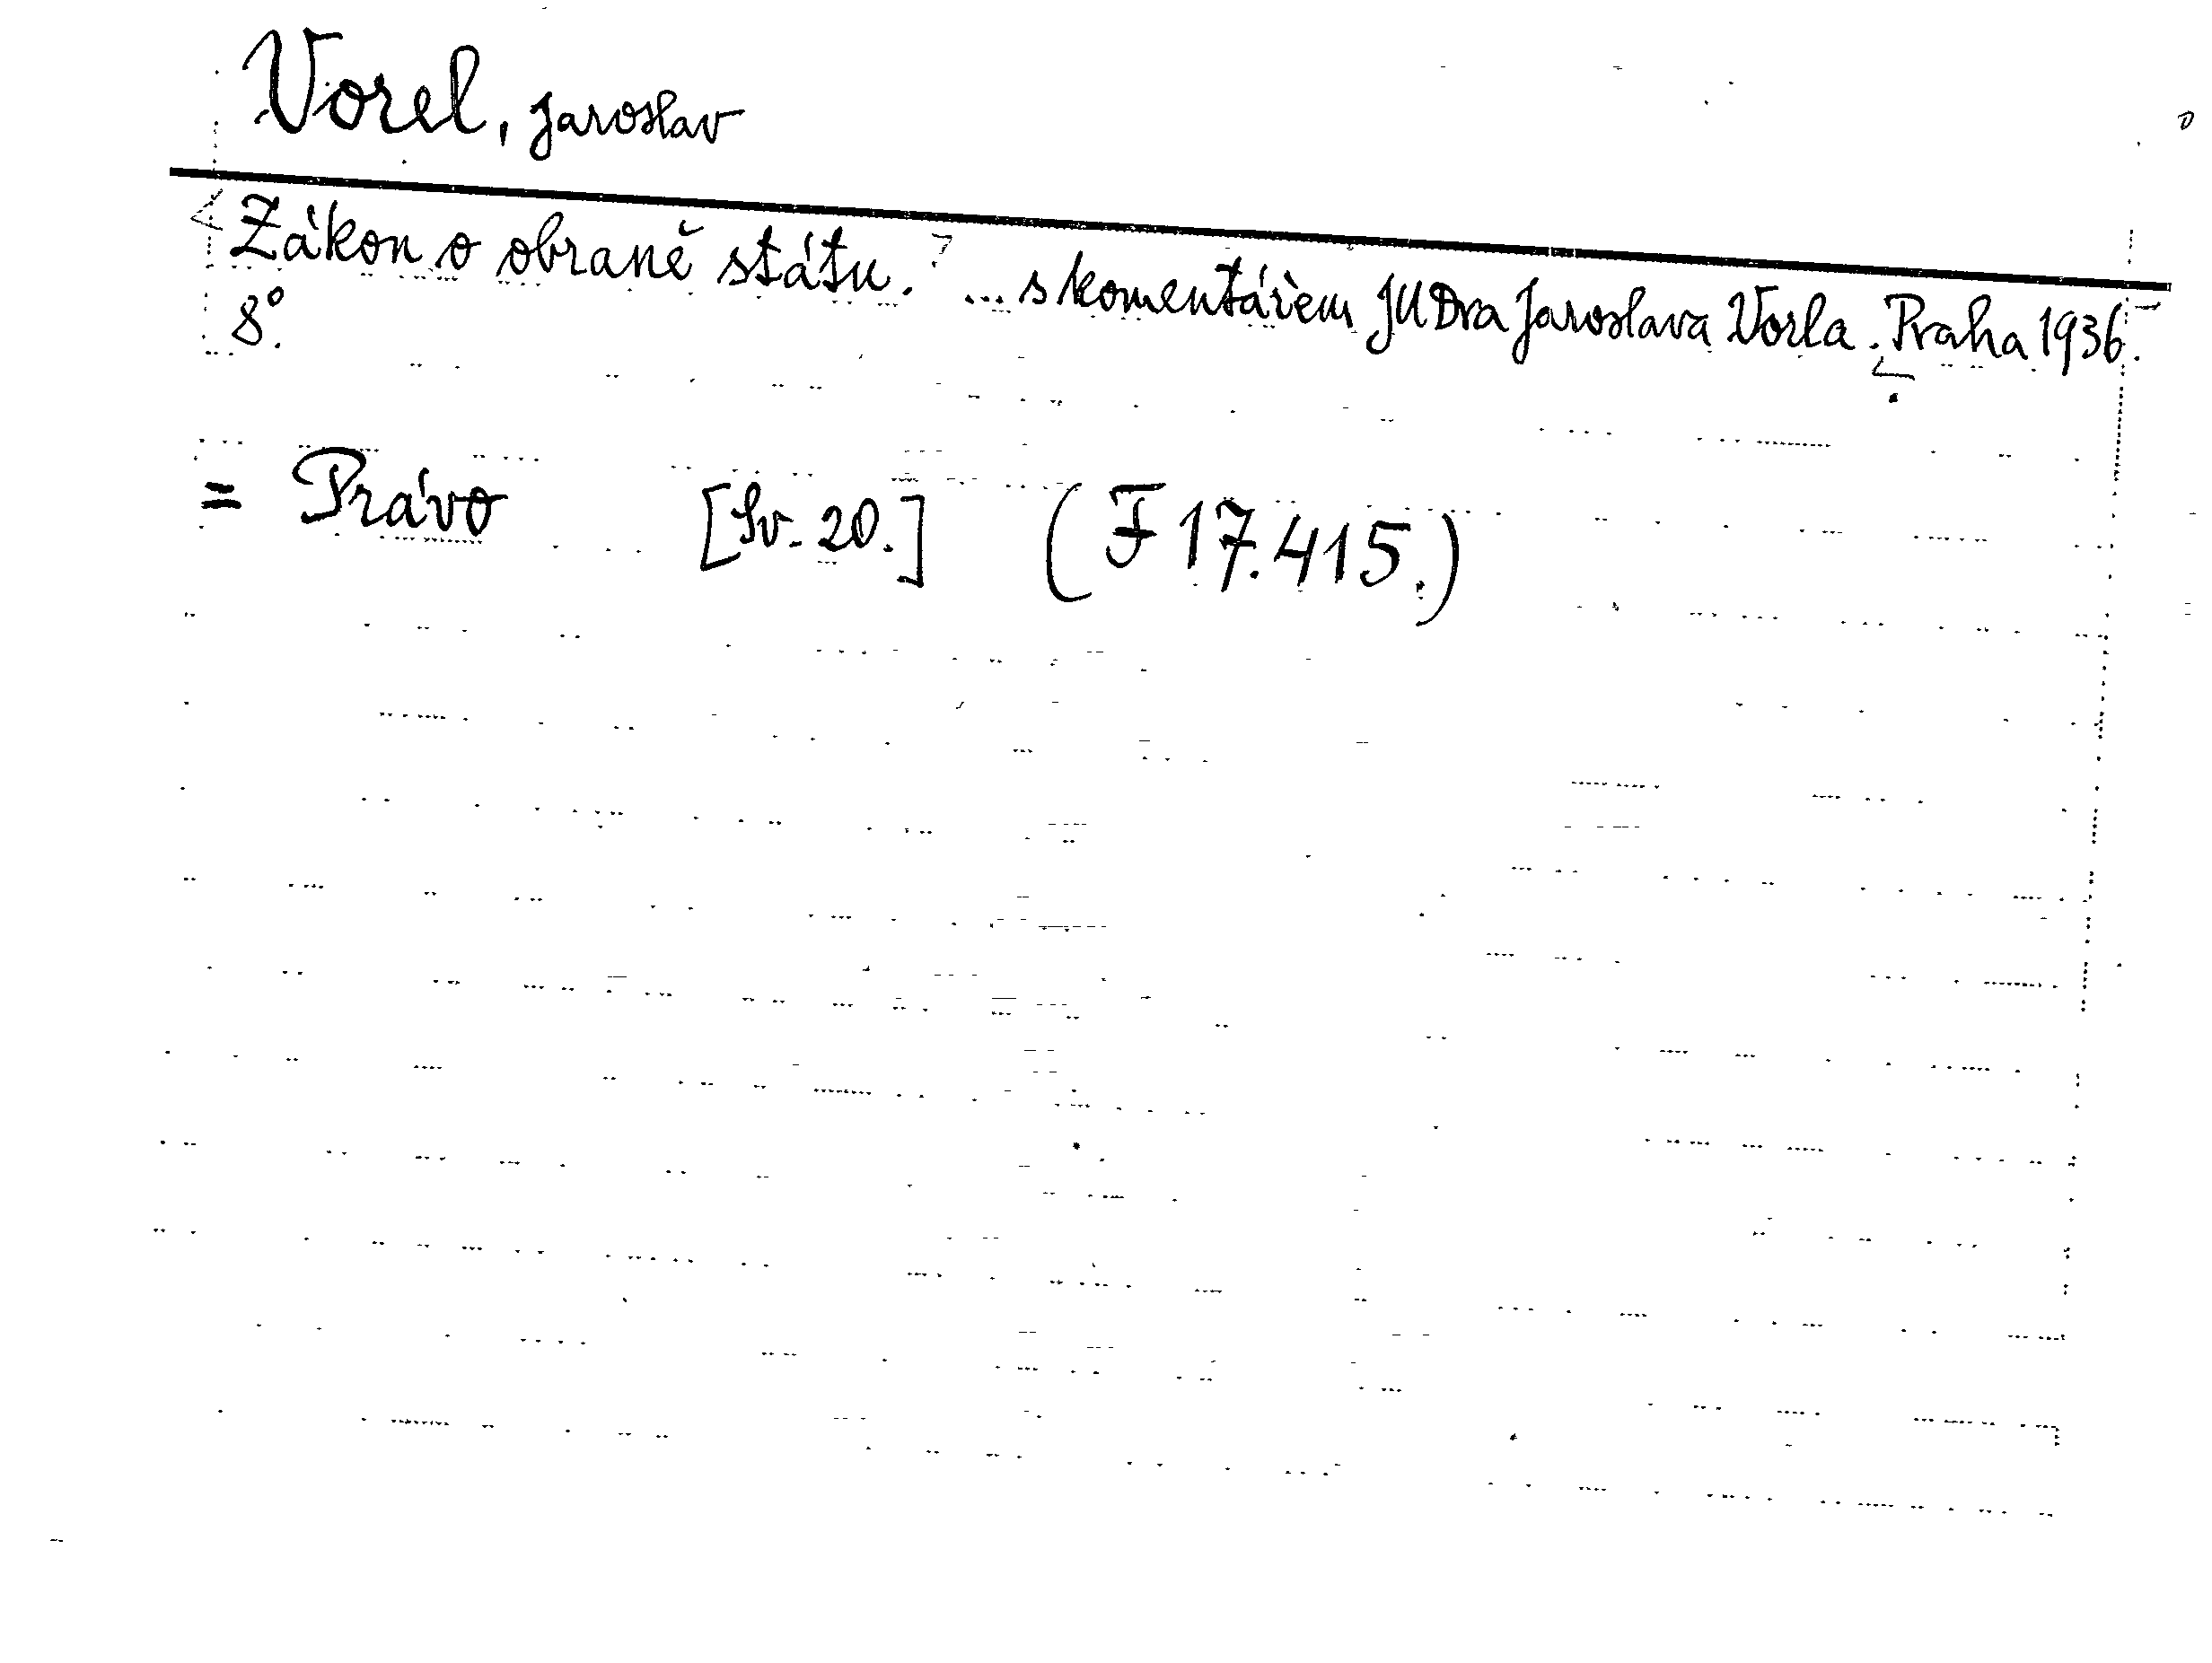 Vorel, Jaroslav
Zákon o obraně státu. ... s komentářem JUDra Jaroslava Vorla. Praha 1936.
8°.
= Právo [Sv. 20.] (F 17.415.)